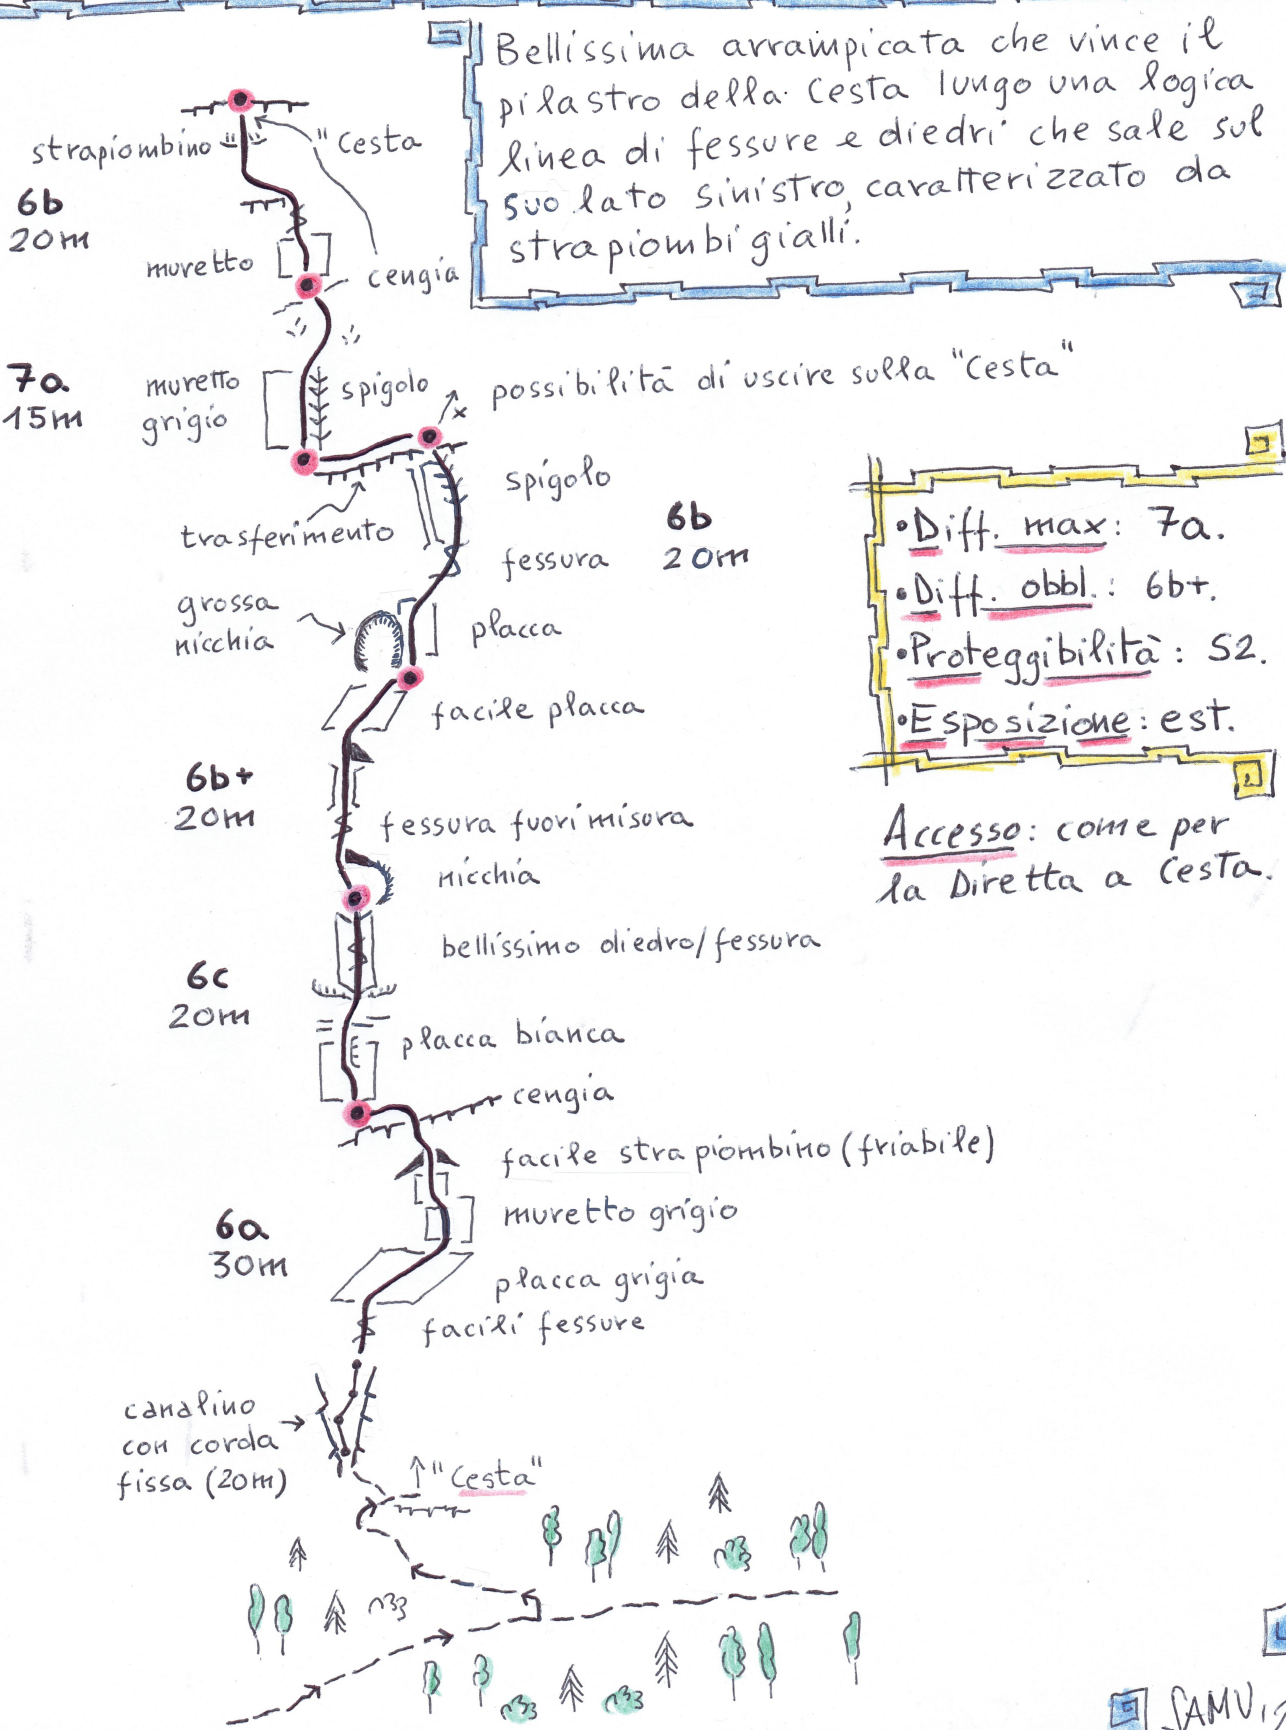 Bellissima arrampicata che vince il
pilastro della Cesta lungo una logica
linea di fessure e diedri che sale sul
suo lato sinistro, caratterizzato da
strapiombi gialli.
strapiombino
"Cesta
6b
20m
muretto
cengia
7a
15m
muretto
grigio
spigolo
possibilità di uscire sulla "Cesta"
trasferimento
spigolo
fessura
6b
20m
grossa
nicchia
placca
facile placca
6b+
20m
fessura fuori misura
nicchia
bellissimo diedro/fessura
6c
20m
placca bianca
cengia
facile strapiombino (friabile)
6a
30m
muretto grigio
placca grigia
facili fessure
canalino
con corda
fissa (20m)
"Cesta"
•Diff. max: 7a.
•Diff. obbl.: 6b+.
•Proteggibilità: S2.
•Esposizione: est.
Accesso: come per
la Diretta a Cesta.